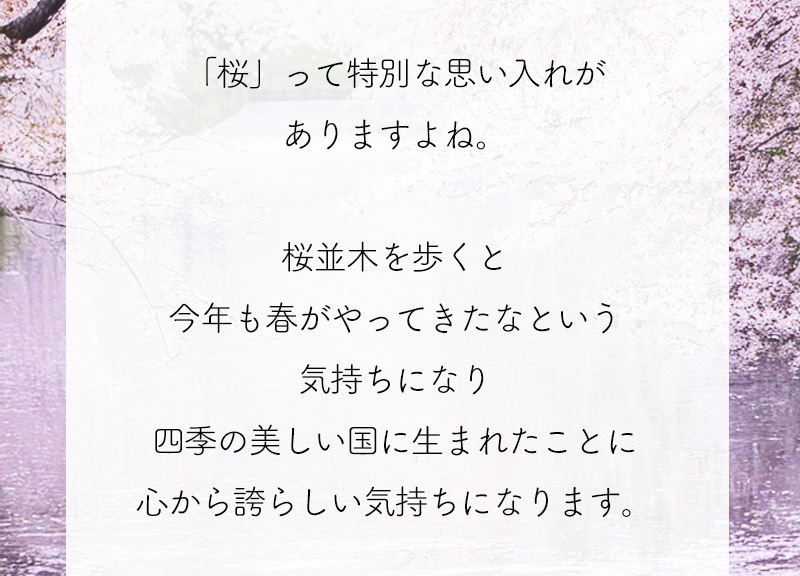 「桜」って特別な思い入れが
ありますよね。
桜並木を歩くと
今年も春がやってきたなという
気持ちになり
四季の美しい国に生まれたことに
心から誇らしい気持ちになります。